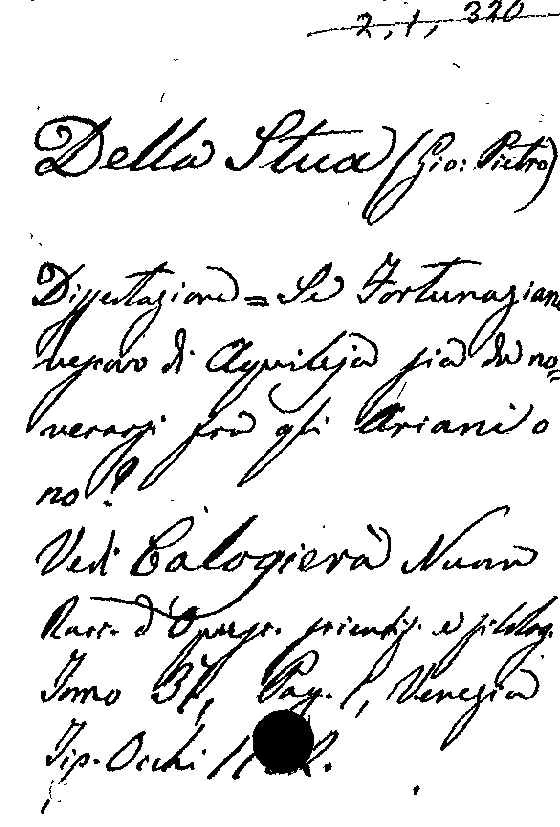 2, 1, 320
Della Stua (Gio: Pietro)
Dissertazione = Se Fortunaziano
vescovo di Aquileja sia da no=
verarsi fra gli Ariani o
no?
Vedi Calogierà Nuova
Racc. d'Opusc. scientif. e filolog.
Tomo 37, Pag. 1, Venezia
Tip. Occhi